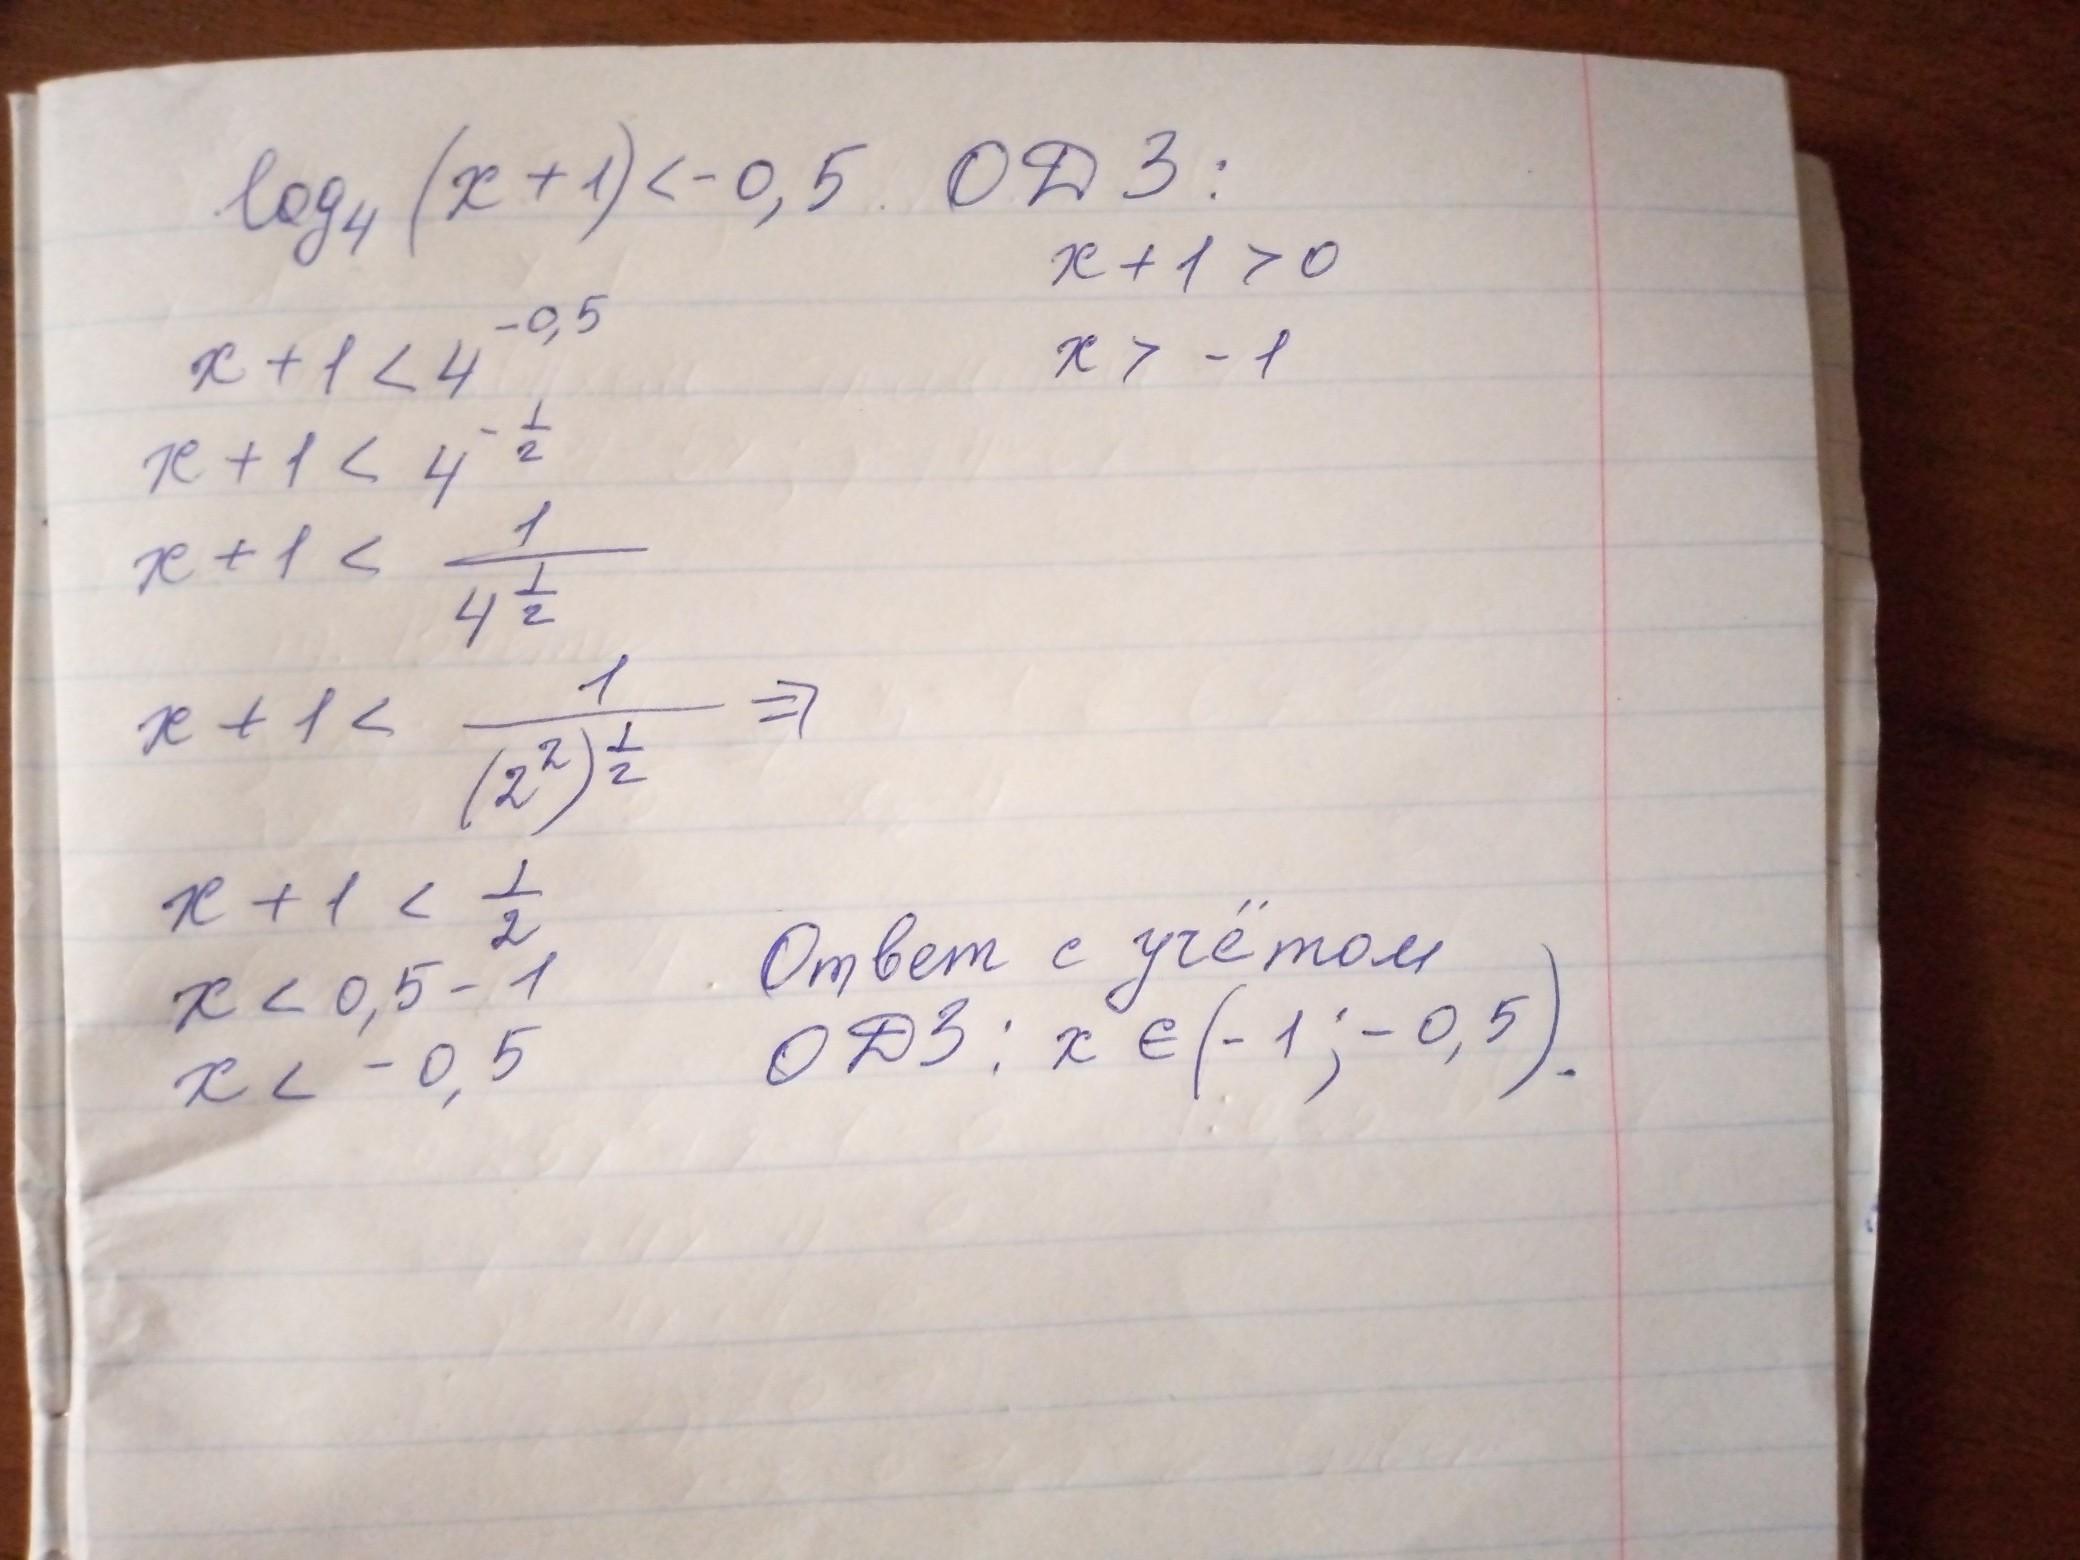 log₄(x+1)<-0,5 ОДЗ:
x+1>0
x>-1
x+1<4^{-0,5}
x+1<4^{-\frac{1}{2}}
x+1<\frac{1}{4^{\frac{1}{2}}}
x+1<\frac{1}{(2^2)^{\frac{1}{2}}} ⇒
x+1<\frac{1}{2}
x<0,5-1
x<-0,5
Ответ с учётом
ОДЗ: x∈(-1;-0,5).